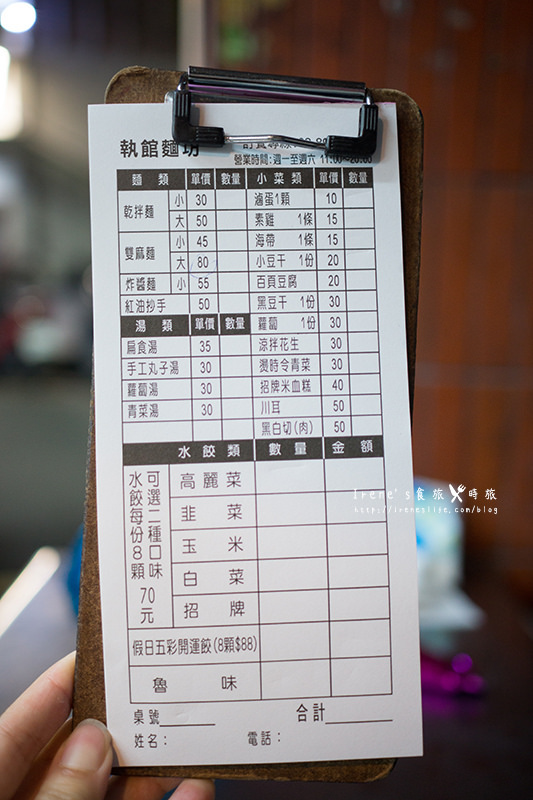 執館麵坊
營業時間:週一至週六 11:00~20:00
麵 類 單價 數量 小菜類 單價 數量
乾拌麵 小 30 滷蛋1顆 10
大 50 素雞 1條 15
雙麻麵 小 45 海帶 1條 15
大 80 小豆干 1份 20
炸醬麵 小 55 百頁豆腐 20
紅油抄手 50 黑豆干 1份 30
湯 類 單價 數量 蘿蔔 1份 30
扁食湯 35 涼拌花生 30
手工丸子湯 30 燙時令青菜 30
蘿蔔湯 30 招牌米血糕 40
青菜湯 30 川耳 50
黑白切(肉) 50
水餃類 數量 金額
可選二種口味
水餃每份8顆 70元
高麗菜
韭菜
玉米
白菜
招牌
假日五彩開運餃(8顆$88)
魯味
桌號 合計
姓名: 電話:
Irene's食旅時旅
http://ireneslife.com/blog